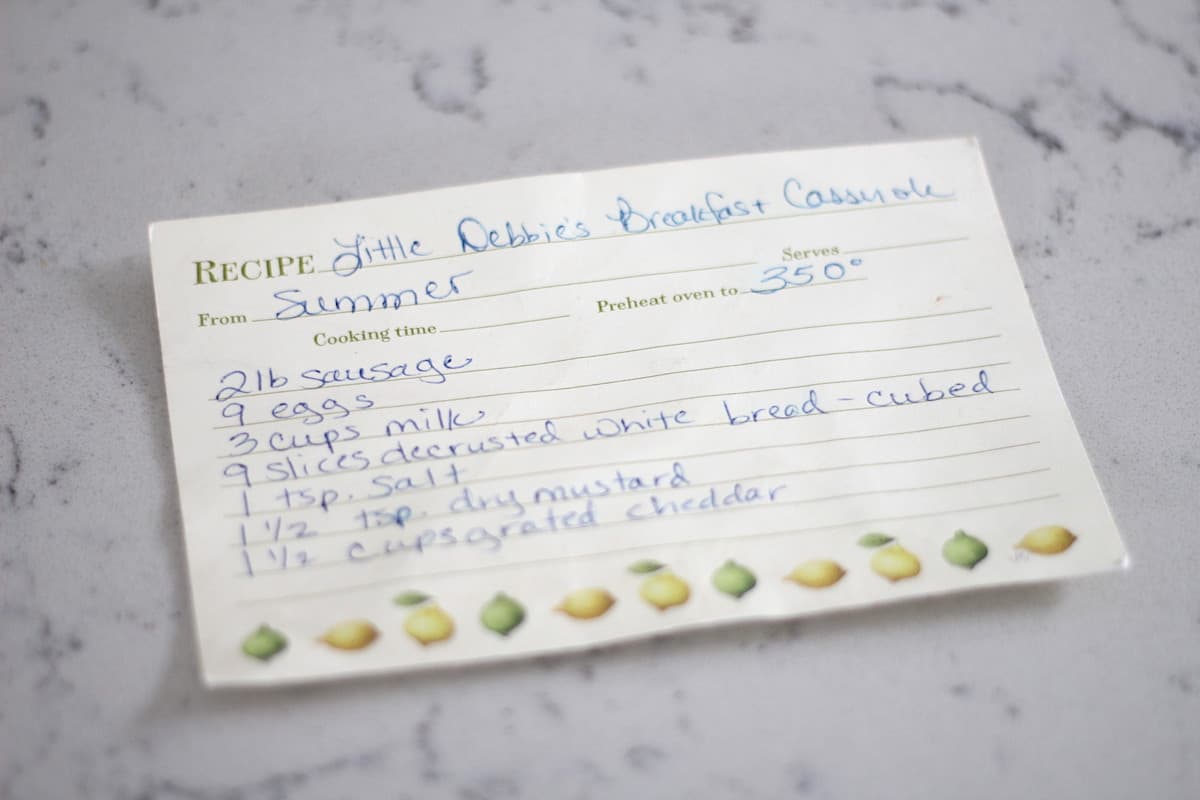 RECIPE Little Debbie's Breakfast Casserole
From Summer Serves
Cooking time Preheat oven to 350°
2lb sausage
9 eggs
3 cups milk
9 slices decrusted white bread - cubed
1 tsp. salt
1 1/2 tsp. dry mustard
1 1/2 cups grated cheddar